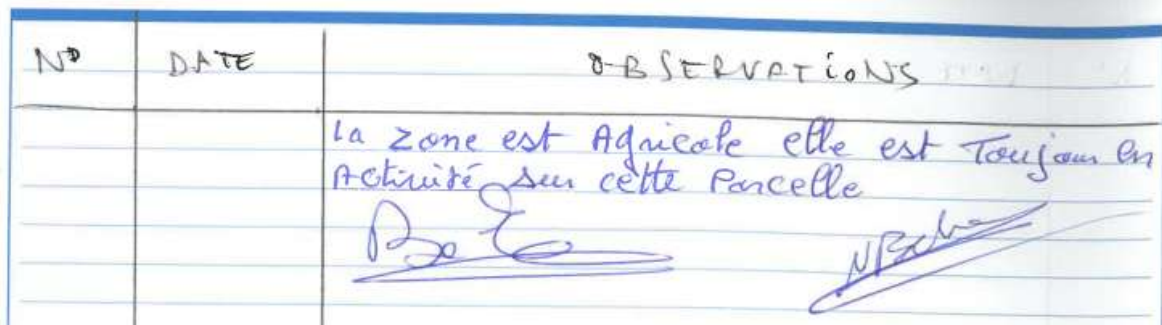 N° DATE OBSERVATIONS
La zone est Agricole elle est Toujour en
Activité sur cette Parcelle